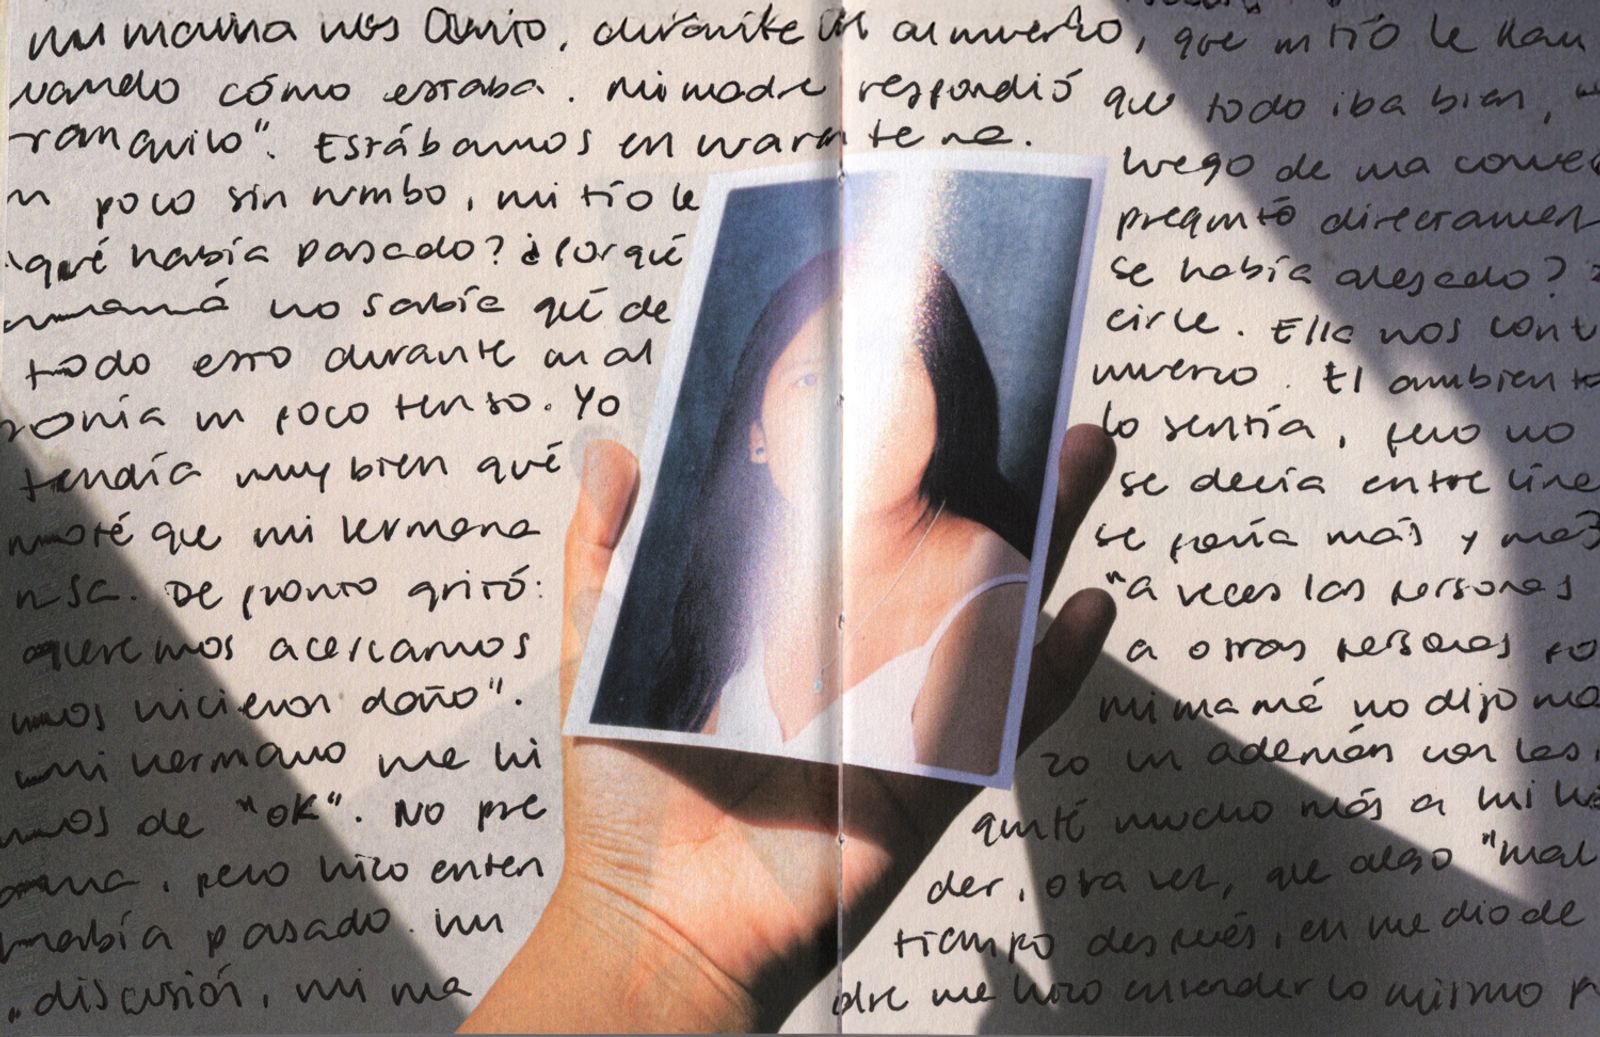 mi mamá nos contó, durante el almuerzo, que mi tío le
cómo estaba. Mi madre respondió que todo iba bien,
tranquilo". Estábamos en cuarentena.
un poco sin rumbo, mi tío le
¿qué había pasado? ¿Por qué
mamá no sabía qué de
todo esto durante un al
ponía un poco tenso. Yo
tendía muy bien qué
noté que mi hermana
nsa. De pronto gritó:
queremos acercarnos
nos hicieron daño".
mi hermano me hi
mos de "ok". No pre
pero hizo enten
había pasado. un
discusión, mi ma
luego de una conve
preguntó directamen
se había alejado?
cirle. Ella nos cont
muerzo. El ambiente
lo sentía, pero no
se decía entre líne
se ponía más y más
"a veces las personas
a otras personas
mi mamá no dijo
zo un ademán con las
gunté mucho más a mi
der, otra vez, que algo "mal
tiempo después, en medio de
dre me hizo entender lo mismo